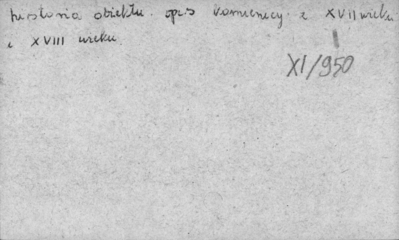 historia obiektu. opis kamienicy z XVII wieku
i XVIII wieku.
XI/950